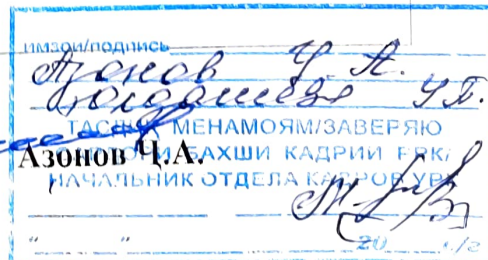 имзои/подпись
Азонов Ч. А.
Юлдошева У П.
ТАСДИҚ МЕНАМОЯМ/ЗАВЕРЯЮ
Азонов Ч.А.
БАХШИ КАДРИИ
НАЧАЛЬНИК ОТДЕЛА КАДРОВ
" " 20 с/г